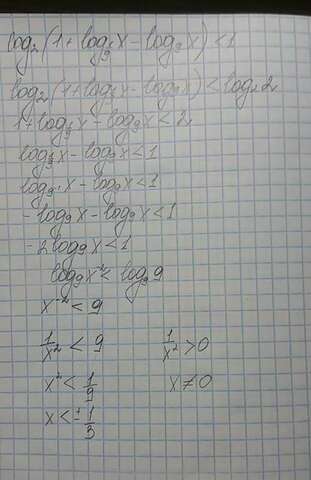 log₂(1 + log_{1/9} x - log₉ x) < 1
log₂(1 + log_{1/9} x - log₉ x) < log₂ 2
1 + log_{1/9} x - log₉ x < 2
log_{1/9} x - log₉ x < 1
log_{9⁻¹} x - log₉ x < 1
- log₉ x - log₉ x < 1
- 2 log₉ x < 1
log₉ x⁻² < log₉ 9
x⁻² < 9
1/x² < 9 1/x² > 0
x² < 1/9 x ≠ 0
x < ± 1/3